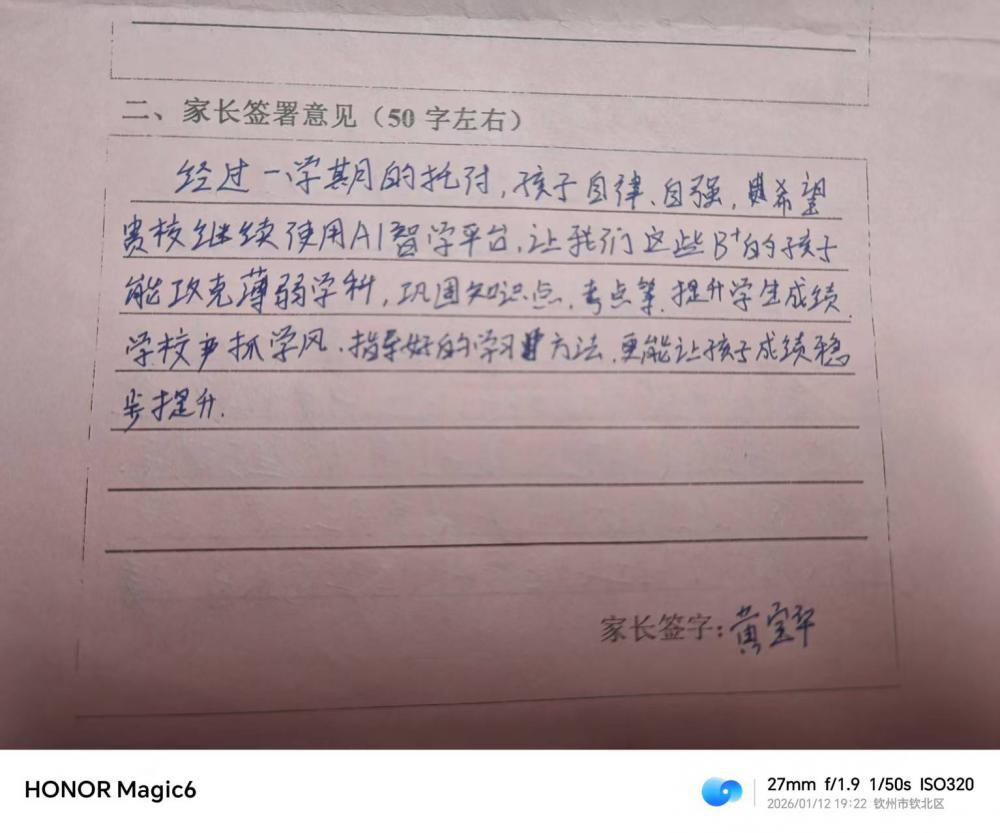 二、家长签署意见（50字左右）
经过一学期的托付，孩子自律、自强，希望
贵校继续使用AI智学平台，让我们这些B+的孩子
能攻克薄弱学科，巩固知识点、考点等，提升学生成绩，
学校严抓学风、指导好的学习方法，更能让孩子成绩稳
步提升.
家长签字：黄宝平
HONOR Magic6
27mm f/1.9 1/50s ISO320
2026/01/12 19:22 钦州市钦北区